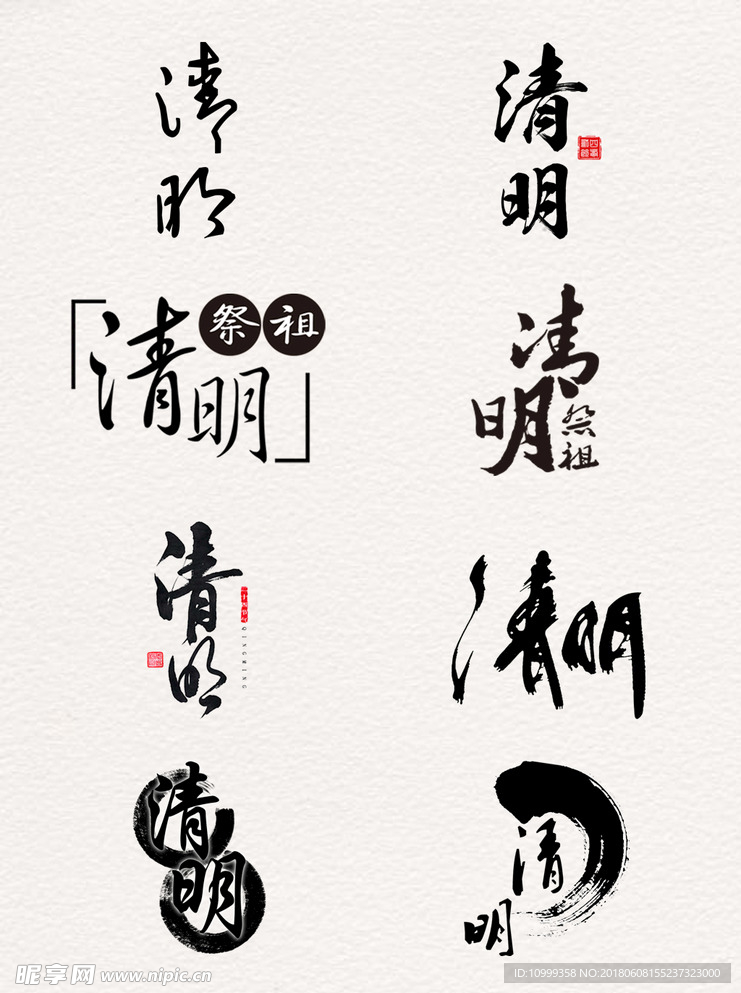 清明
清明
祭祖
清明
清明
祭祖
清明
二十四节气
QINGMING
清明
清明
清明
昵享网 www.nipic.cn
ID:10999358 NO:20180608155237323000